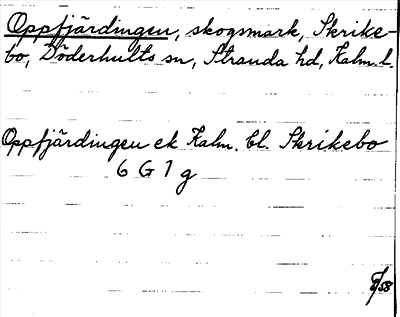 Oppfjärdingen, skogsmark, Skrike-
bo, Döderhults sn, Stranda hd, Kalm. l.
Oppfjärdingen ek Kalm. bl. Skrikebo
6 G 1 g